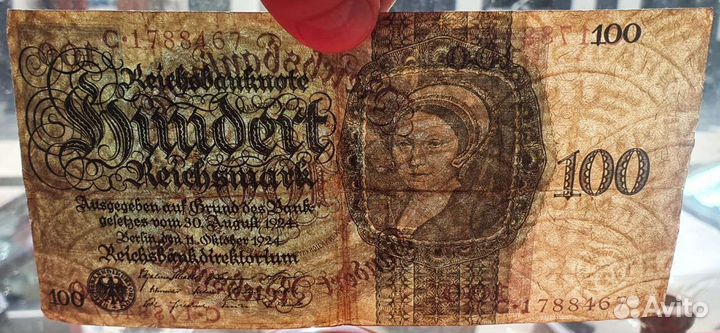 C·1788467
100
Reichsbanknote
Hundert
Reichsmark
100
Ausgegeben auf Grund des Bank-
gesetzes vom 30. August 1924
Berlin, den 11. Oktober 1924
Reichsbankdirektorium
100
C·1788467
Avito